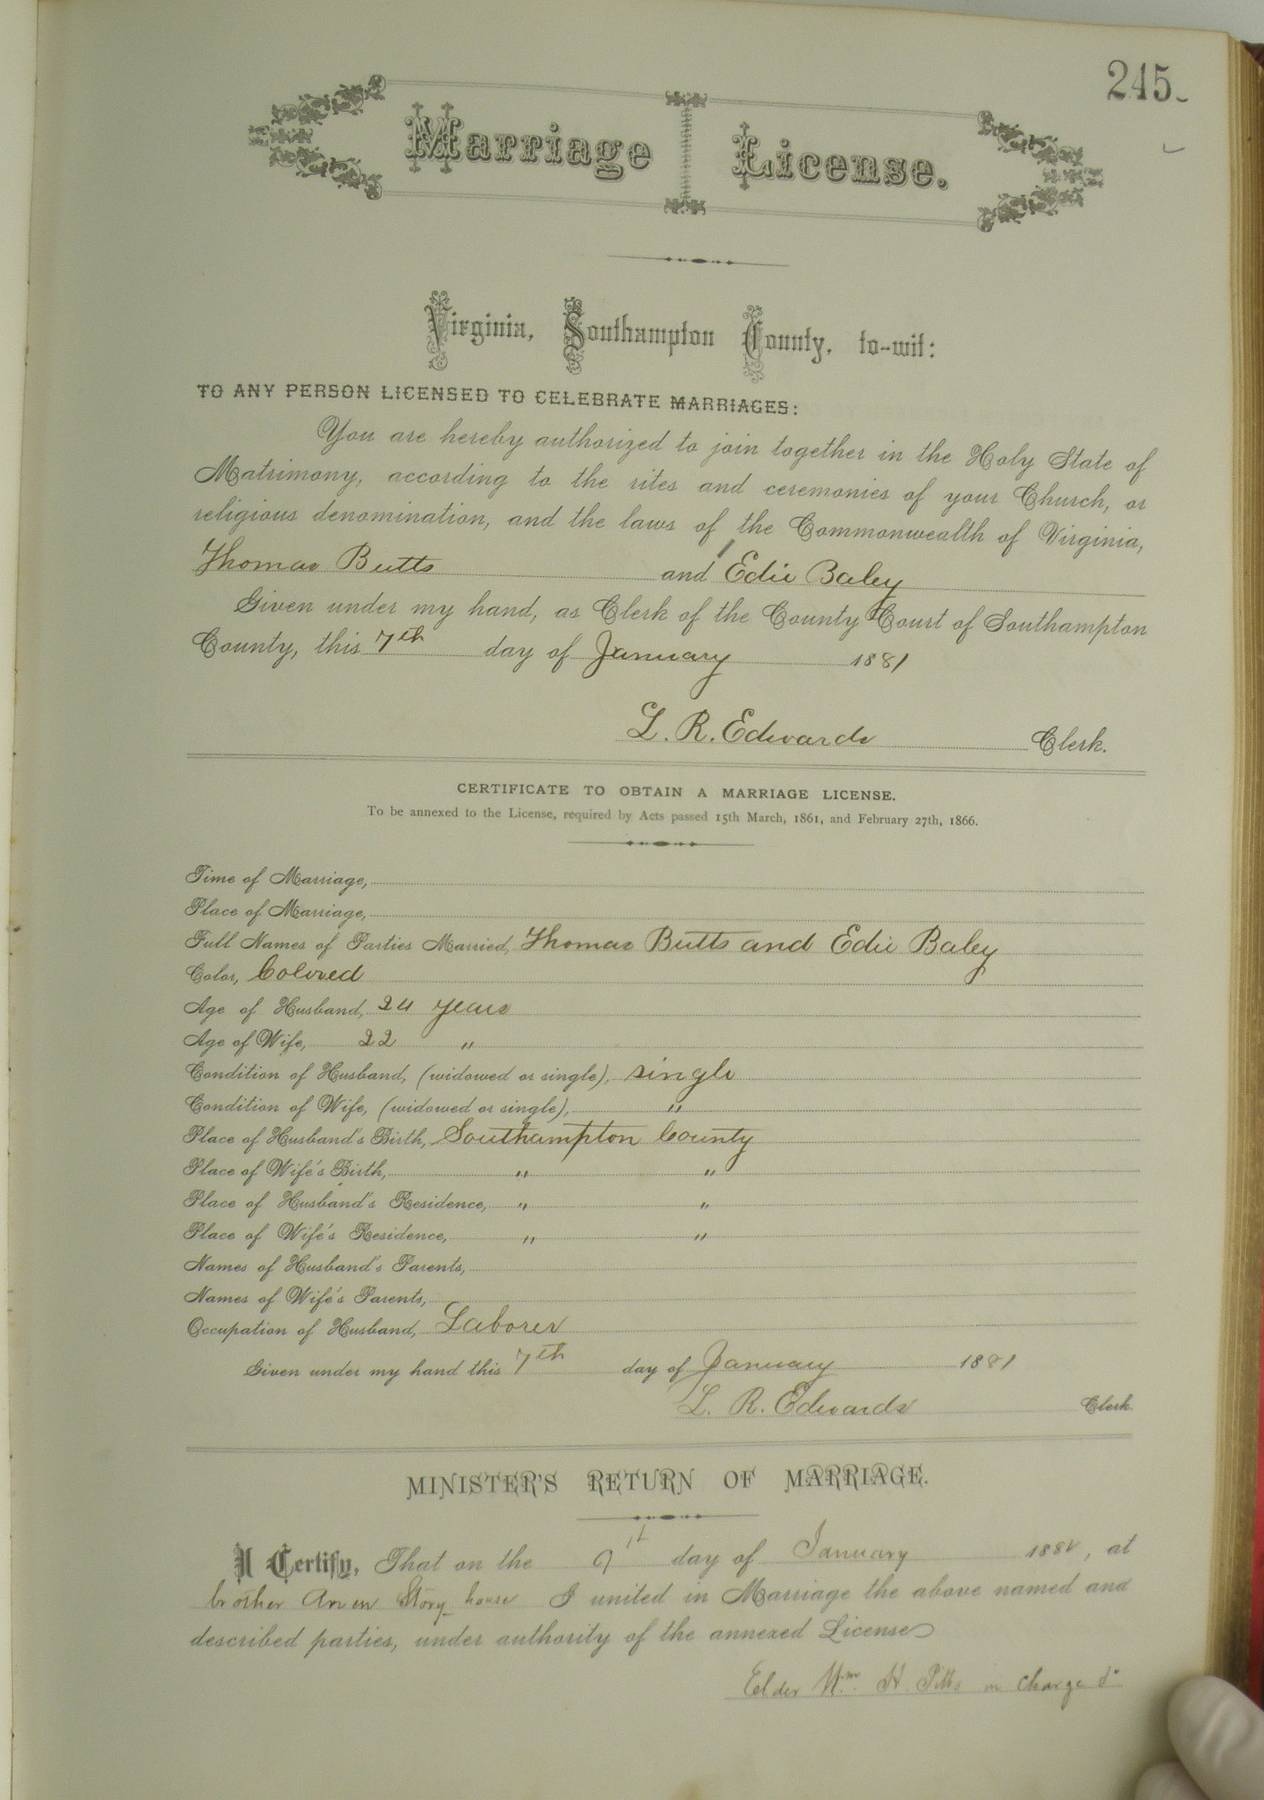 245
Marriage License.
Virginia, Southampton County, to-wit:
TO ANY PERSON LICENSED TO CELEBRATE MARRIAGES:
You are hereby authorized to join together in the Holy State of
Matrimony, according to the rites and ceremonies of your Church, or
religious denomination, and the laws of the Commonwealth of Virginia,
Thomas Butts and Edie Baley
Given under my hand, as Clerk of the County Court of Southampton
County, this 7th day of January 1881
L. R. Edwards Clerk.
CERTIFICATE TO OBTAIN A MARRIAGE LICENSE.
To be annexed to the License, required by Acts passed 15th March, 1861, and February 27th, 1866.
Time of Marriage,
Place of Marriage,
Full Names of Parties Married, Thomas Butts and Edie Baley
Color, Colored
Age of Husband, 24 years
Age of Wife, 22 "
Condition of Husband, (widowed or single), single
Condition of Wife, (widowed or single), "
Place of Husband's Birth, Southampton County
Place of Wife's Birth, " "
Place of Husband's Residence, " "
Place of Wife's Residence, " "
Names of Husband's Parents,
Names of Wife's Parents,
Occupation of Husband, Laborer
Given under my hand this 7th day of January 1881
L. R. Edwards Clerk
MINISTER'S RETURN OF MARRIAGE.
I Certify, That on the day of January 188 , at
brother Story house I united in Marriage the above named and
described parties, under authority of the annexed License
Elder Wm. H. Pitts in charge